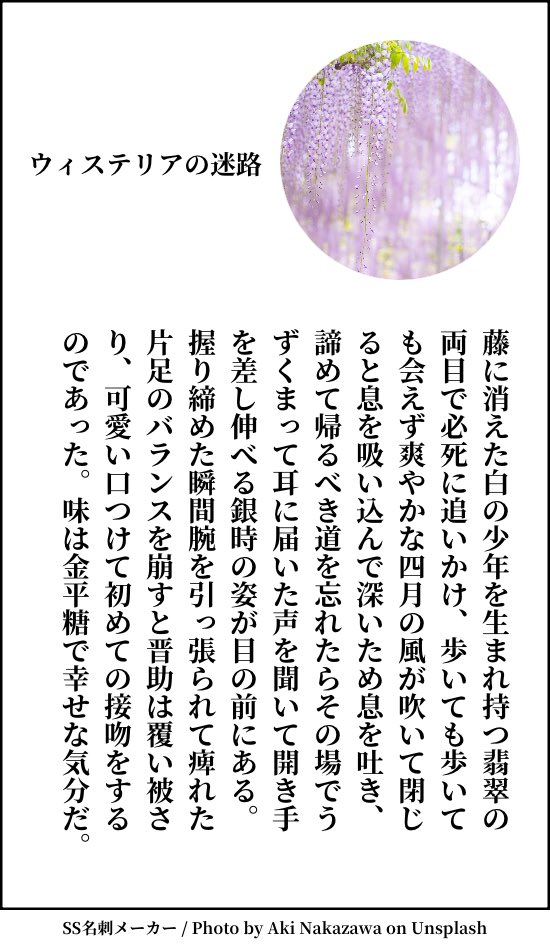 ウィステリアの迷路
藤に消えた白の少年を生まれ持つ翡翠の
両目で必死に追いかけ、歩いても歩いて
も会えず爽やかな四月の風が吹いて閉じ
ると息を吸い込んで深いため息を吐き、
諦めて帰るべき道を忘れたらその場でう
ずくまって耳に届いた声を聞いて開き手
を差し伸べる銀時の姿が目の前にある。
握り締めた瞬間腕を引っ張られて痺れた
片足のバランスを崩すと晋助は覆い被さ
り、可愛い口つけて初めての接吻をする
のであった。味は金平糖で幸せな気分だ。
SS名刺メーカー / Photo by Aki Nakazawa on Unsplash